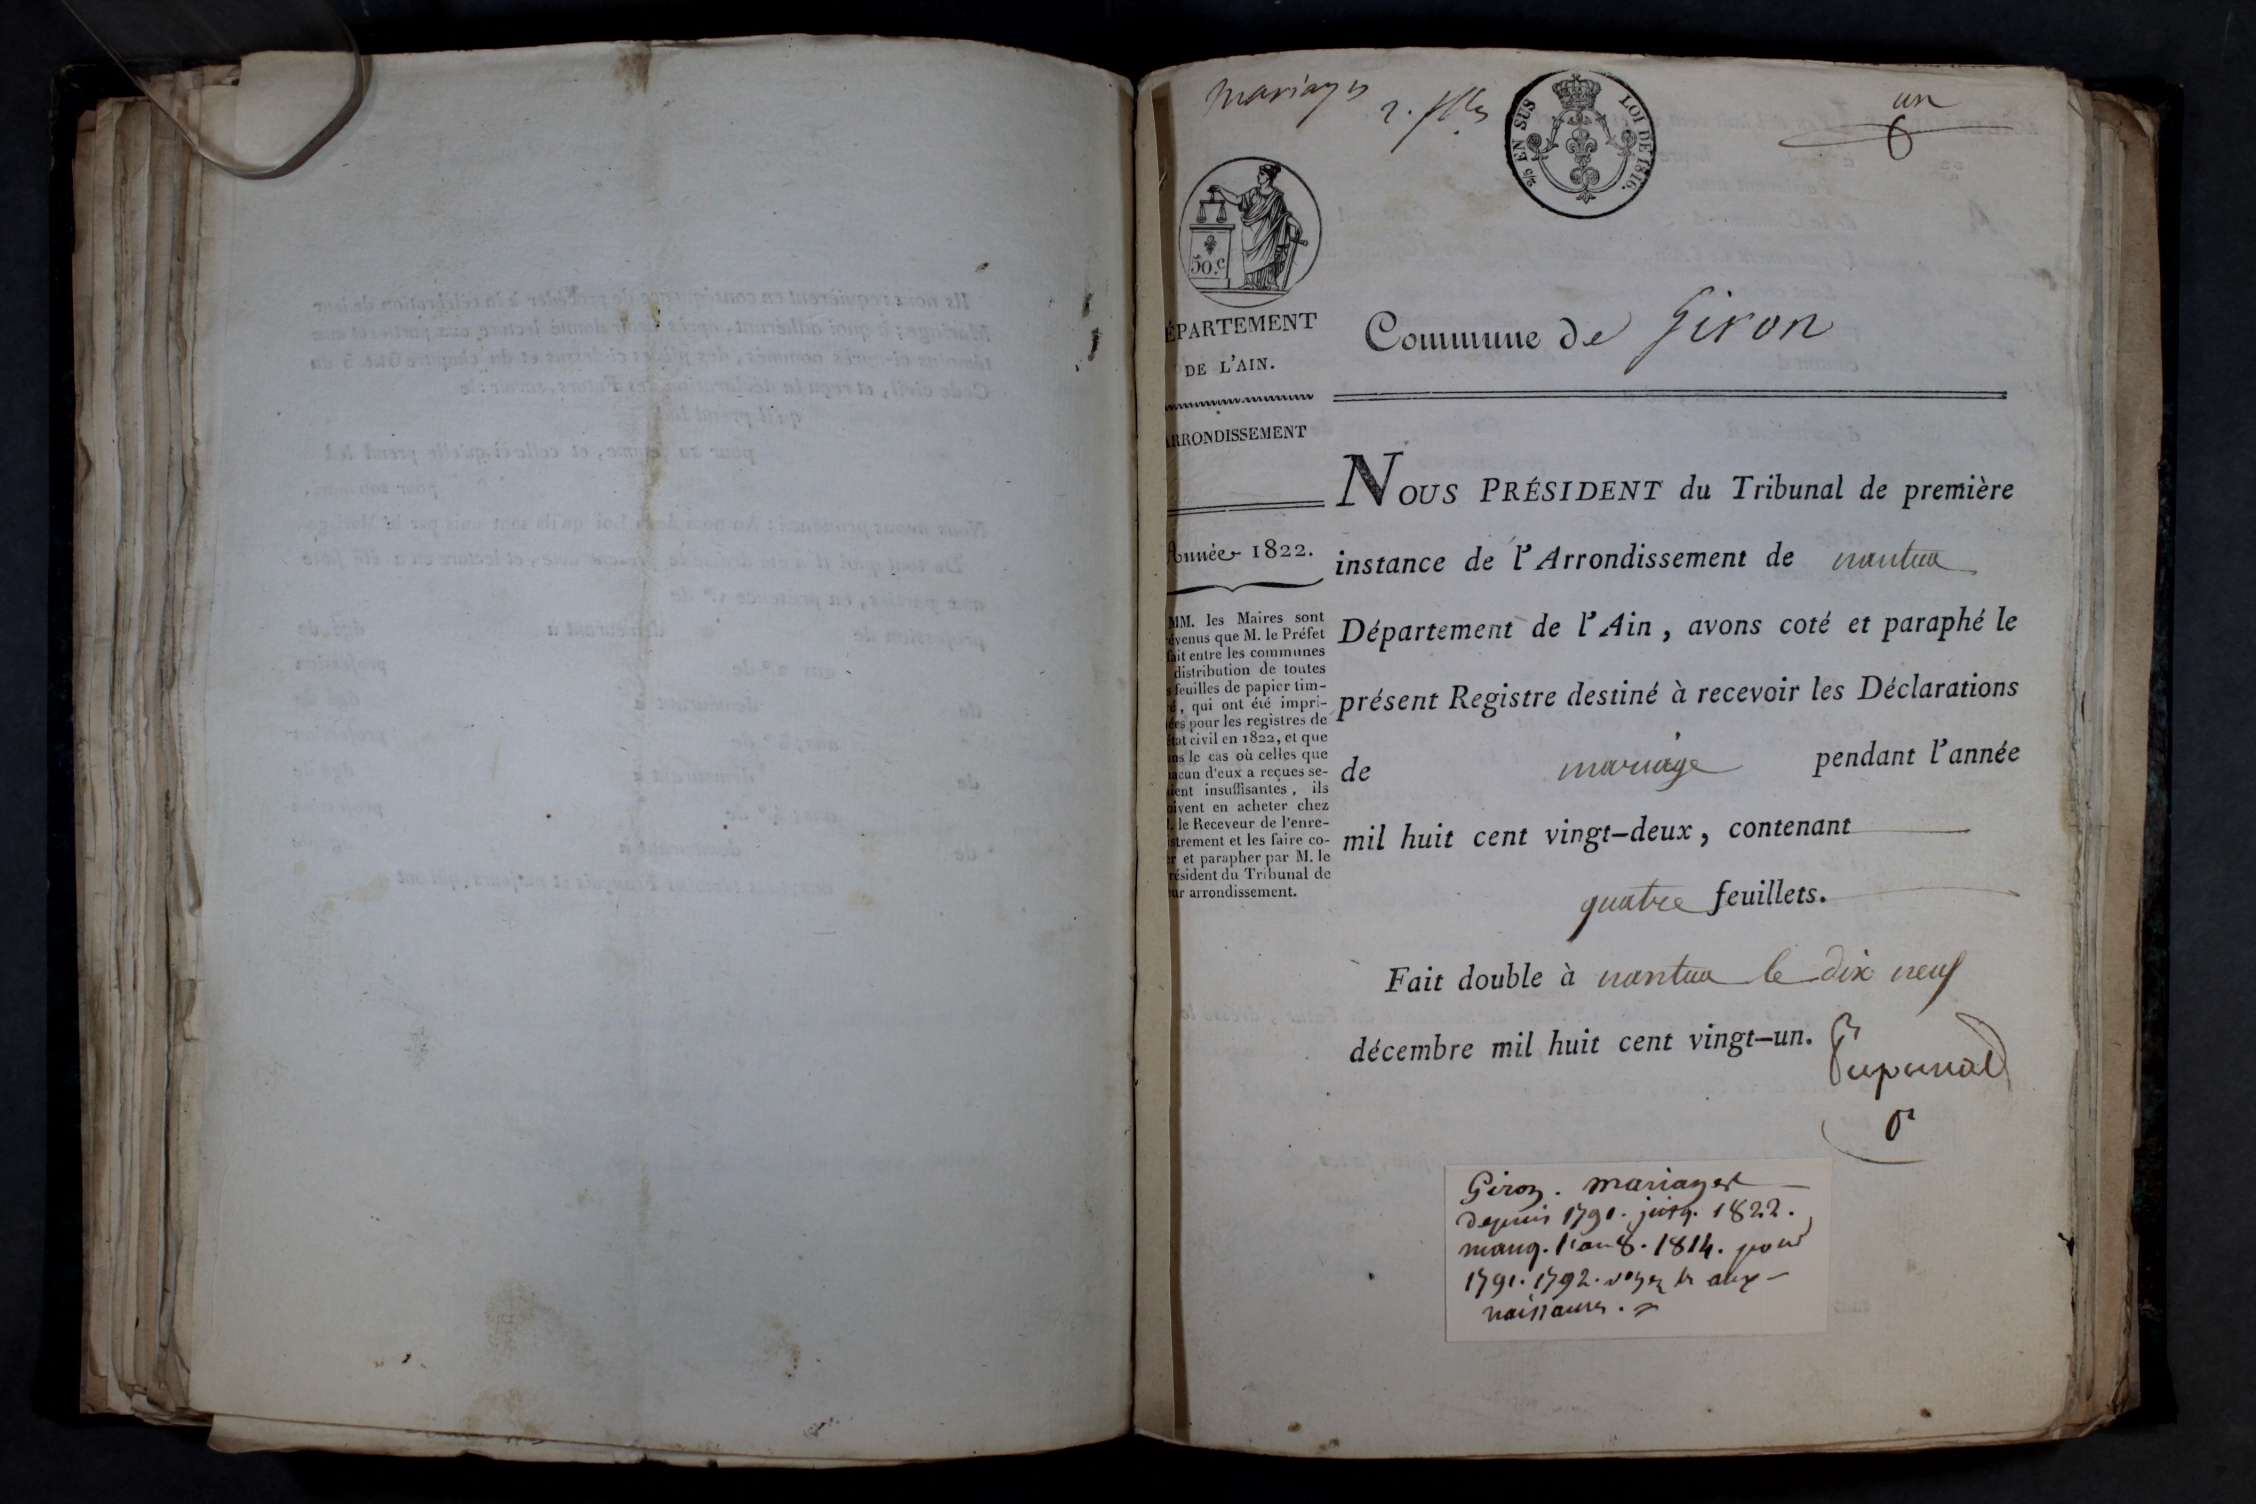 mariages
2. flles
2/5 EN SUS LOI DE 1816.
un
50.c
ÉPARTEMENT
DE L'AIN.
ARRONDISSEMENT
Année 1822.
MM. les Maires sont
évenus que M. le Préfet
fait entre les communes
distribution de toutes
s feuilles de papier tim-
é, qui ont été impri-
ées pour les registres de
état civil en 1822, et que
ns le cas où celles que
acun d'eux a reçues se-
ient insuffisantes, ils
oivent en acheter chez
. le Receveur de l'enre-
strement et les faire co-
er et parapher par M. le
résident du Tribunal de
ur arrondissement.
Commune de Giron
NOUS PRÉSIDENT du Tribunal de première
instance de l'Arrondissement de nantua
Département de l'Ain, avons coté et paraphé le
présent Registre destiné à recevoir les Déclarations
de mariage pendant l'année
mil huit cent vingt-deux, contenant
quatre feuillets.
Fait double à nantua le dix neuf
décembre mil huit cent vingt-un.
Giron. mariages
depuis 1791. jusq. 1822.
manq. l'an 8. 1814. pour
1791. 1792. voyez les aux
naissances.